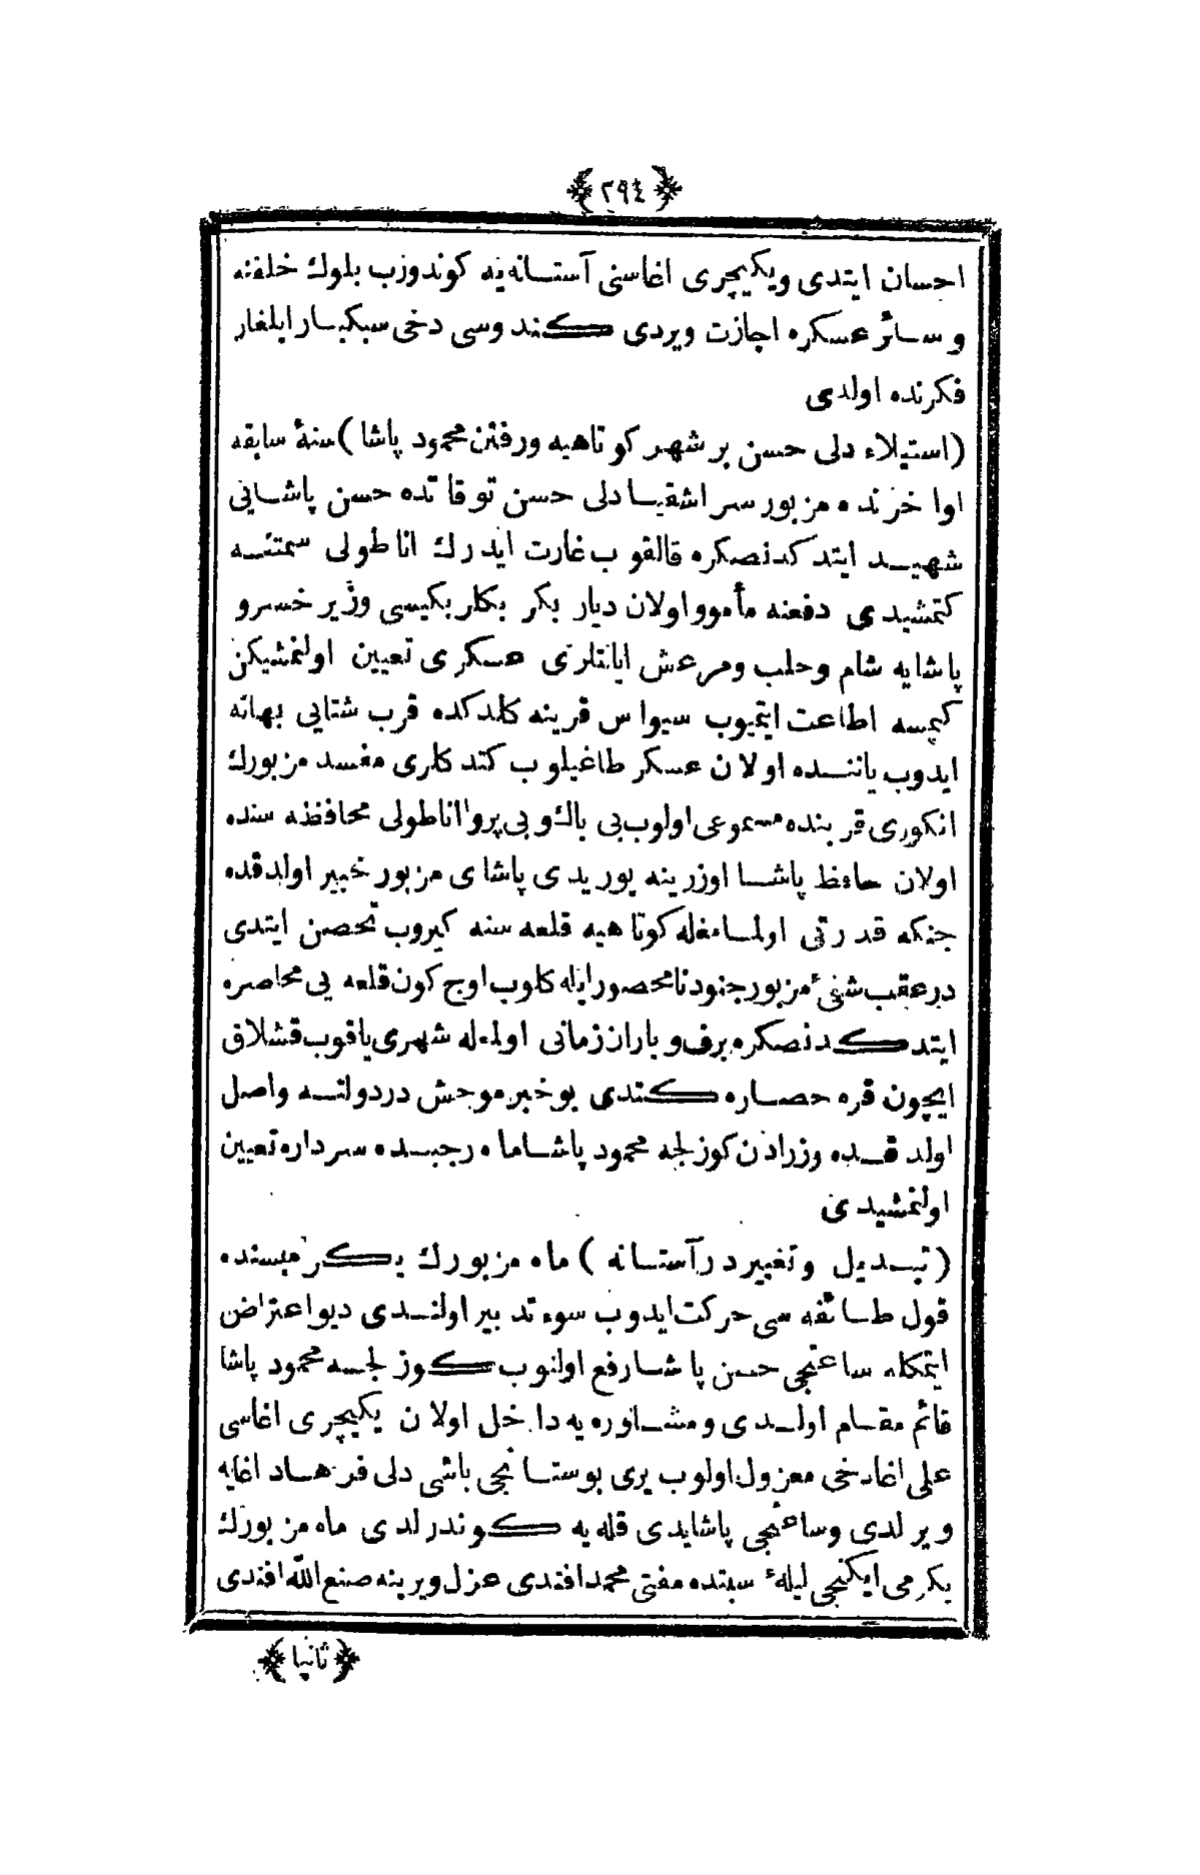 ﴿٢٩٤﴾
احسان ایتدی ویکیچری اغاسنی آستانه یه کوندوزب بلوك خلقنه
و سائر عسکره اجازت ویردی کندوسی دخی سبکبار ایلغار
فکرنده اولدی
(استیلاء دلی حسن بر شهر کوتاهیه ورفتن محمود پاشا) سنهٔ سابقه
اوا خرنده مزبور سر اشقیا دلی حسن توقاتده حسن پاشایی
شهید ایتدکدنصکره قالقوب غارت ایدرك اناطولی سمتنه
کتمشیدی دفعنه مأموو اولان دیار بکر بکلربکیسی وزیر خسرو
پاشایه شام وحلب ومرعش ایالتلری عسکری تعیین اولنمشیکن
کیمسه اطاعت ایتمیوب سیواس قربنه کلدکده قرب شتایی بهانه
ایدوب یاننده اولان عسکر طاغیلوب کتدکلری مفسد مزبورك
انکوری قربنده مسموعی اولوب بی باك وبی پروا اناطولی محافظه سنده
اولان حافظ پاشا اوزرینه یوریدی پاشای مزبور خبیر اولدقده
جنکه قدرتی اولمامغله کوتاهیه قلعه سنه کیروب تحصن ایتدی
در عقب شقیٔ مزبور جنود نامحصور ایله کلوب اوچ کون قلعه یی محاصره
ایتدکدنصکره برف و باران زمانی اولمله شهری یاقوب قشلاق
ایچون قره حصاره کتدی بو خبر موحش در دولته واصل
اولدقده وزرادن کوزلجه محمود پاشا ماه رجبده سرداره تعیین
اولنمشیدی
(تبدیل وتغییر در آستانه) ماه مزبورك یکرمیسنده
قول طائفه سی حرکت ایدوب سوء تدبیر اولندی دیو اعتراض
ایتمکله ساعتجی حسن پاشا رفع اولنوب کوزلجه محمود پاشا
قائم مقام اولدی و مشاوره یه داخل اولان یکیچری اغاسی
علی اغادخی معزول اولوب یری بوستانجی باشی دلی فرهاد اغایه
ویرلدی وساعتجی پاشایدی قله یه کوندرلدی ماه مزبورك
یکرمی ایکنجی لیلهٔ سبتده مفتی محمد افندی عزل ویرینه صنع الله افندی
﴿ثانیا﴾